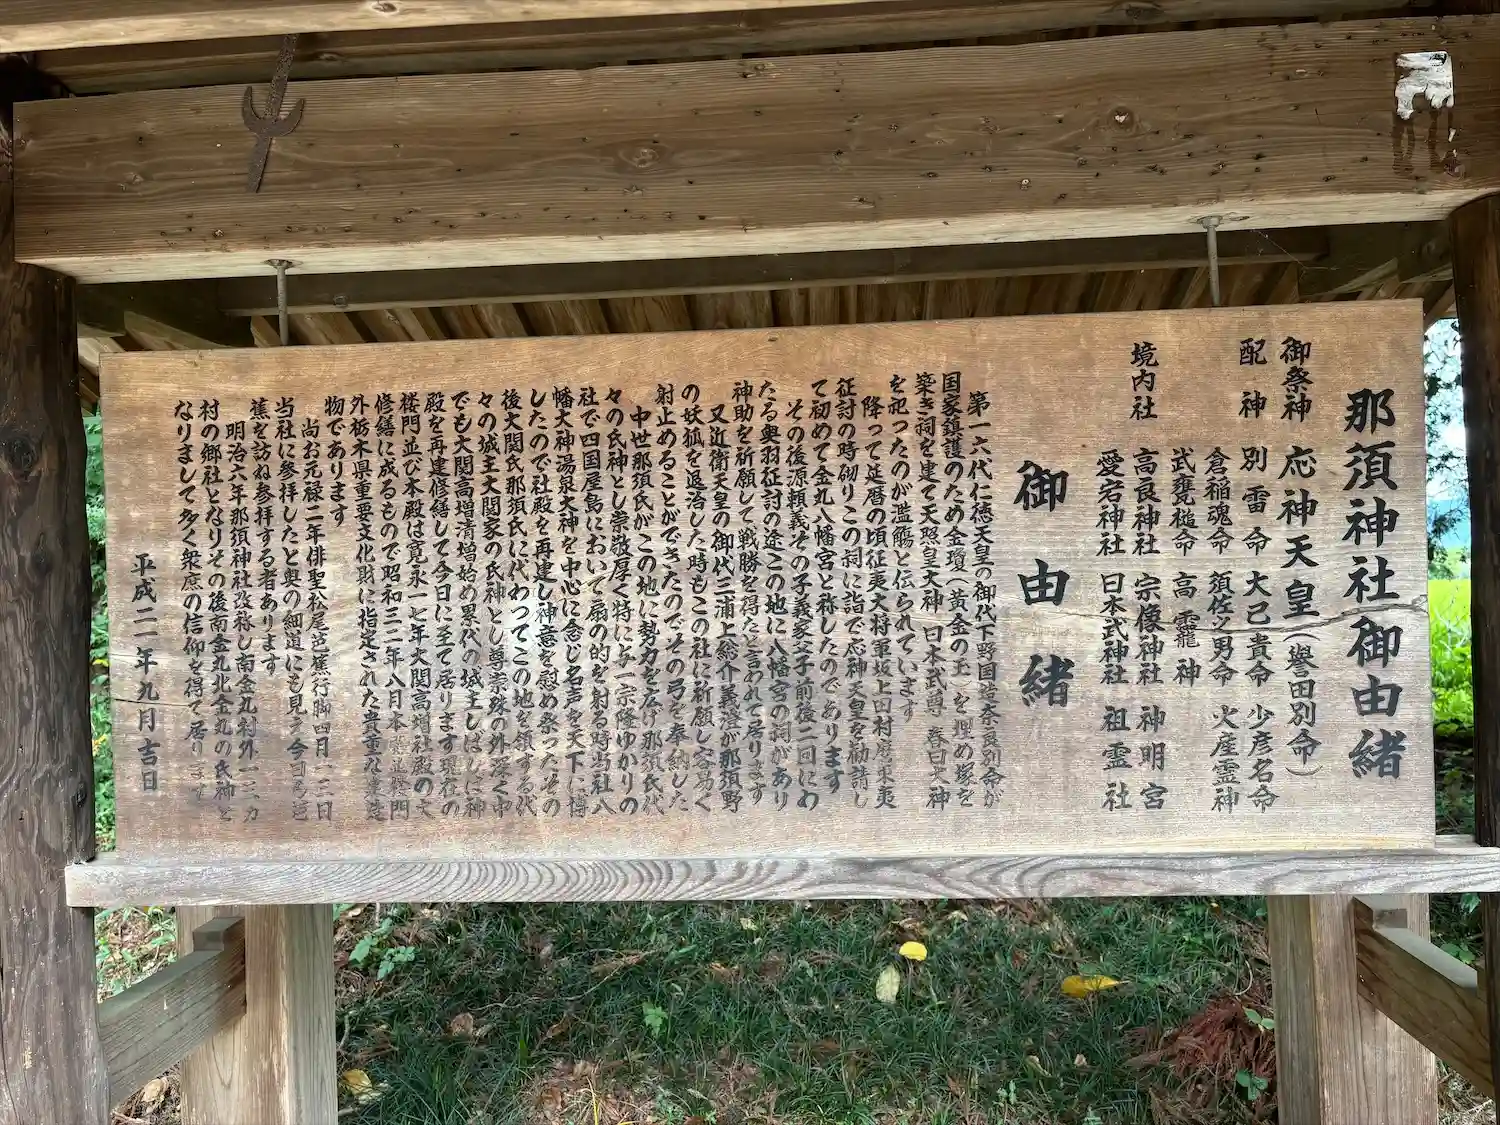 那須神社御由緒
御祭神 応神天皇（誉田別命）
配神 別雷命 大己貴命 少彦名命
倉稲魂命 須佐之男命 火産霊神
武甕槌命 高龗神
境内社 高良神社 宗像神社 神明宮
愛宕神社 日本武神社 祖霊社
御由緒
第一六代仁徳天皇の御代下野国造奈良別命が
国家鎮護のため金瓊（黄金の玉）を埋め塚を
築き祠を建て天照皇大神 日本武尊 春日大神
を祀ったのが濫觴と伝られています
降って延暦の頃征夷大将軍坂上田村麿東夷
征討の時砌りこの祠に詣で応神天皇を勧請し
て初めて金丸八幡宮と称したのであります
その後源頼義その子義家父子前後二回にわ
たる奥羽征討の途この地に八幡宮の祠があり
神助を祈願して戦勝を得たと言われて居ります
又近衛天皇の御代三浦上総介義澄が那須野
の妖狐を退治した時もこの社に祈願し容易く
射止めることができたのでその弓を奉納した
中世那須氏がこの地に勢力を広げ那須氏代
々の氏神とし崇敬厚く特に与一宗隆ゆかりの
社で四国屋島において扇の的を射る時当社八
幡大神湯泉大神を中心に念じ名声を天下に博
したので社殿を再建し神意を慰め祭ったその
後大関氏那須氏に代わってこの地を領する代
々の城主大関家の氏神とし尊崇殊の外深く中
でも大関高増清増始め累代の城主しばしば神
殿を再建修繕して今日に至て居ります現在の
楼門並び本殿は寛永一七年大関高増社殿の大
修繕に成るもので昭和三二年八月本殿並楼門
外栃木県重要文化財に指定された貴重な建造
物であります
尚お元禄二年俳聖松尾芭蕉行脚四月一三日
当社に参拝したと奥の細道にも見え今日芭
蕉を訪ね参拝する者あります
明治六年那須神社改称し南金丸村外一三ヵ
村の郷社となりその後南金丸北金丸の氏神と
なりまして多く衆庶の信仰を得て居ります
平成二一年九月吉日